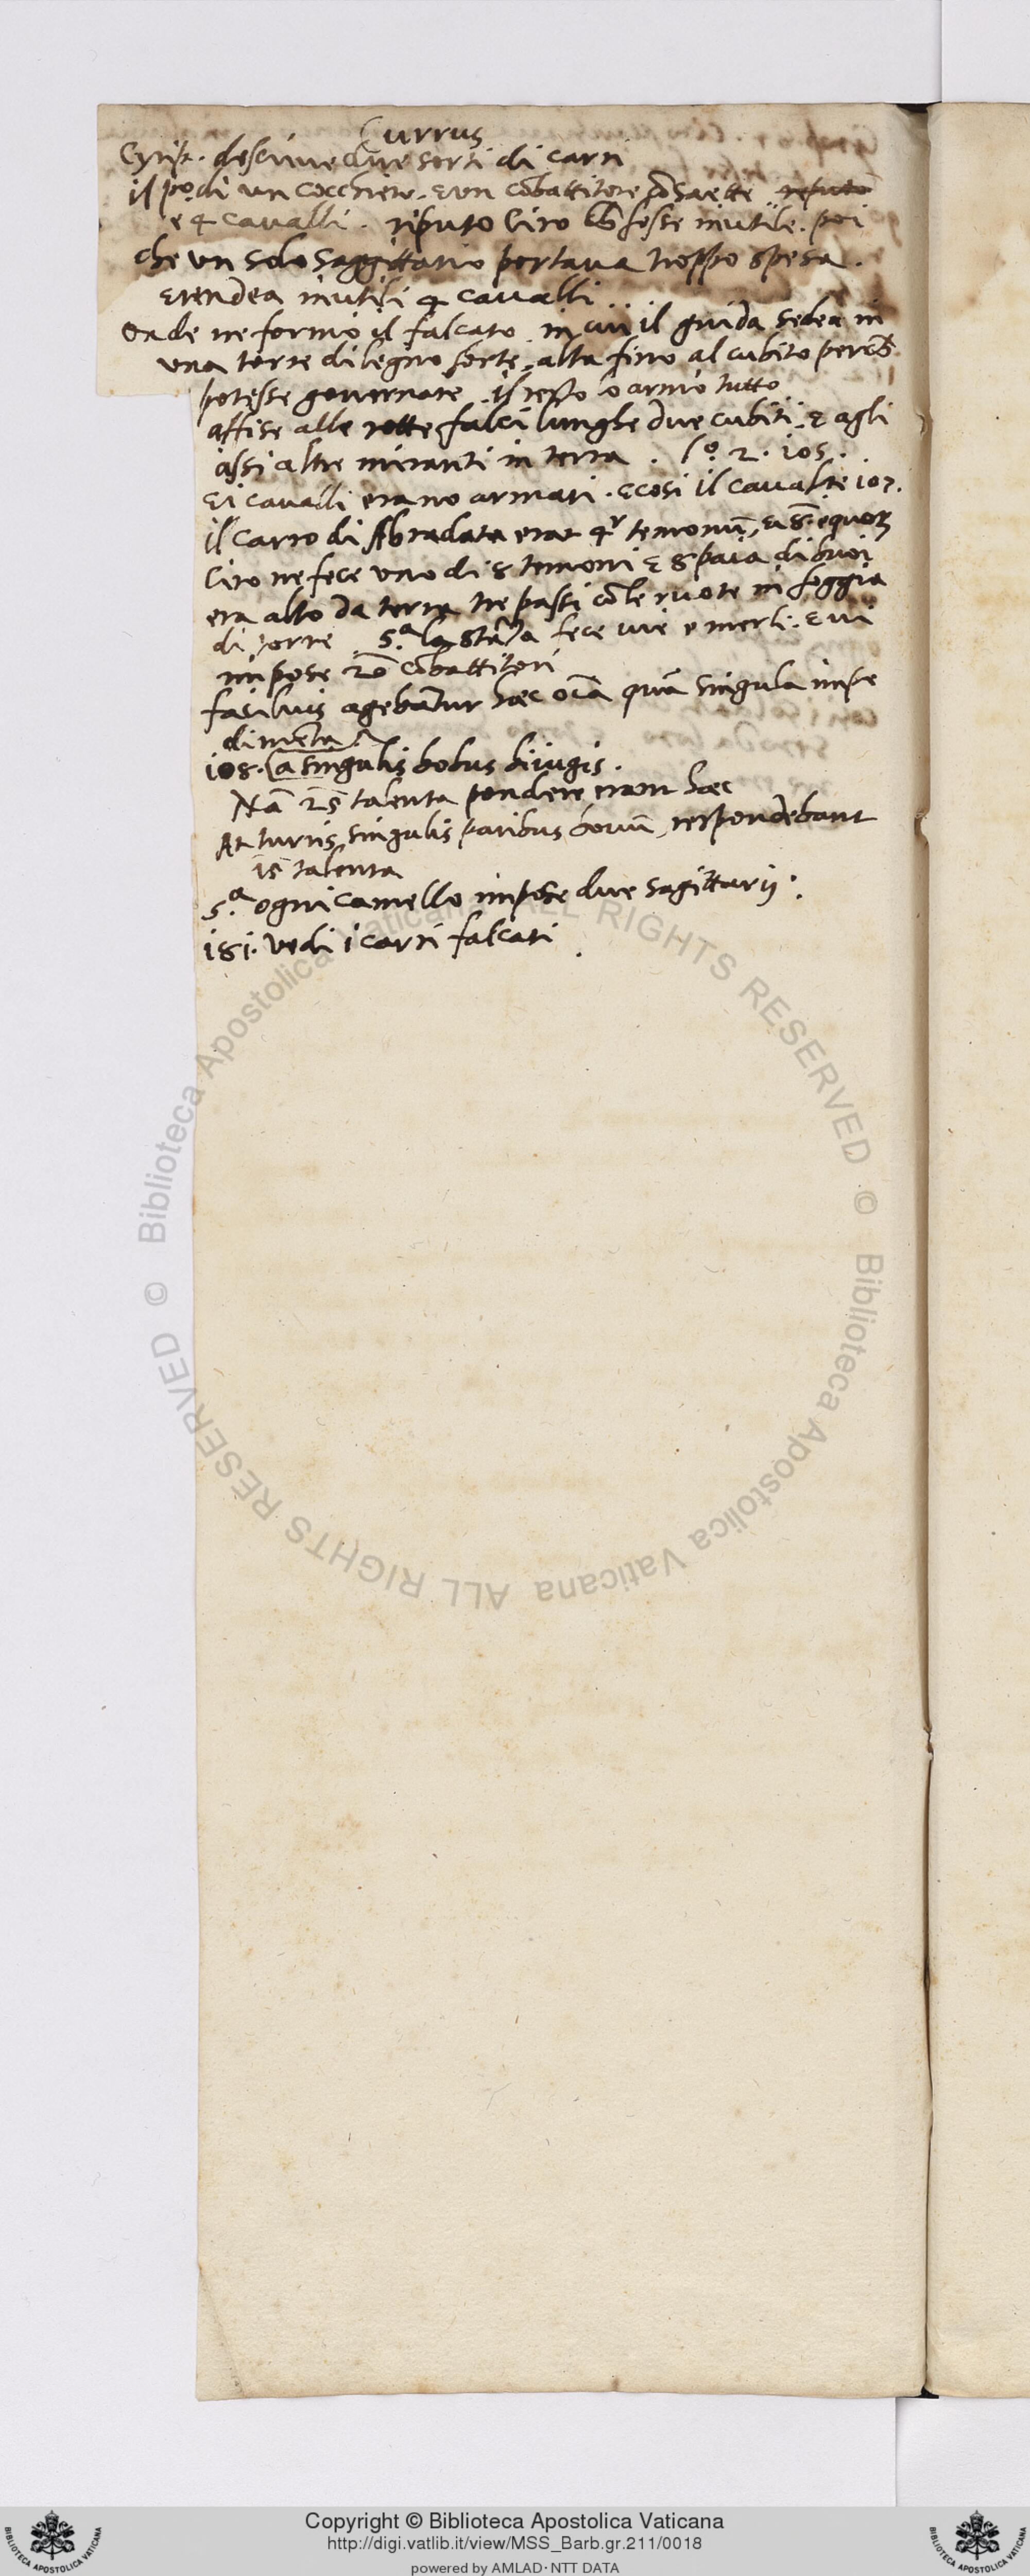 Currus
descriue due sorti di carri
il pº. di un cocchiere. e un cōbattitore saette
e 4 cavalli. riputo Ciro fosse inutile. poi
che un solo saggittario portaua troppo spesa.
e rendea inutili 4 cavalli..
onde ne formò il falcato. in cui il guida sedea in
una torre di legno forte. alta fino al cubito
potesse governare. il resto o armò tutto
affise alle rotte falci lunghe due cubiti. e agli
assi altre miranti in terra. lº. 2. 105.
e i cavalli erano armati. e cosi il 107.
il carro di Abradata erat 4r temonū, equoꝝ
Ciro ne fece uno di 8 temoni e 8 paia di buoi
era alto da terra tre passi cōle ruote in foggia
di torre. 5.ª la fece merli. e vi
impose 20 cōbattitori
facilius agebantur haec quā singula impe
dimēta.
108. a singulis bobus biiugis.
Nā 25 talenta pondere erant haec
At turris singulis paribus boum, respondebant
15 talenta
5.ª ogni camello impose due sagittarij.
181. vedi i carri falcati.
Biblioteca Apostolica Vaticana ALL RIGHTS RESERVED ©
Biblioteca Apostolica Vaticana ALL RIGHTS RESERVED ©
Copyright © Biblioteca Apostolica Vaticana
http://digi.vatlib.it/view/MSS_Barb.gr.211/0018
powered by AMLAD • NTT DATA
BIBLIOTECA APOSTOLICA VATICANA
BIBLIOTECA APOSTOLICA VATICANA